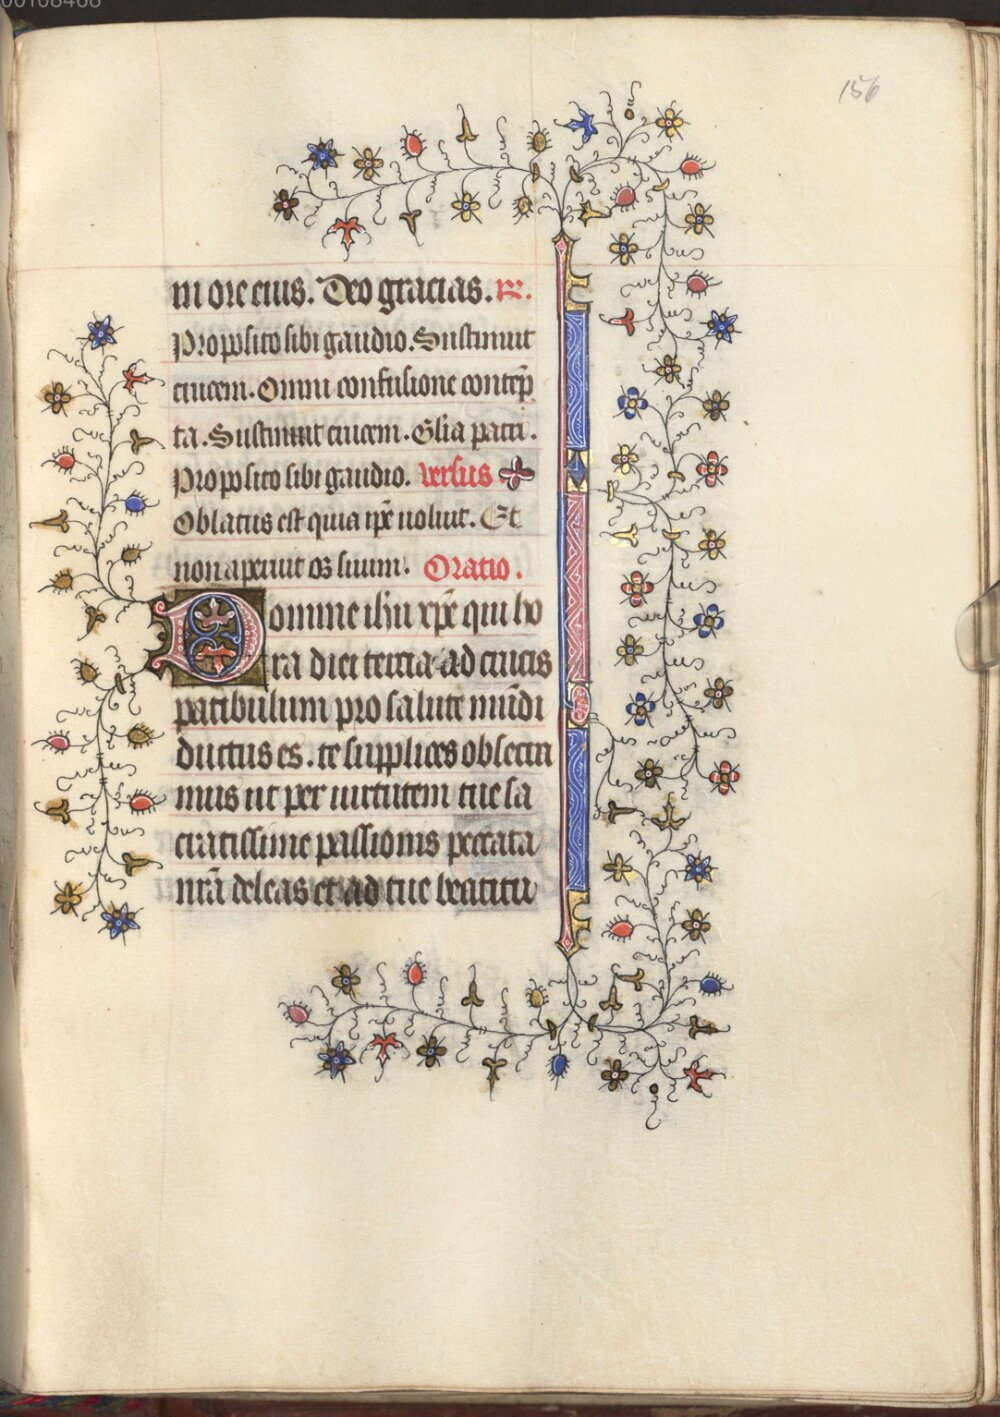 156
in ore eius. Deo gracias. R.
Proposito sibi gaudio. Sustinuit
crucem. Omni confusione contēp
ta. Sustinuit crucem. Gl̄ia patri.
Proposito sibi gaudio. versus
Oblatus est quia ip̄e uoluit. Et
non aperuit os suum. Oratio.
Domine ih̄u xp̄e qui ho
ra diei tercia ad crucis
patibulum pro salute mūdi
ductus es. te supplices obsecra
mus ut per uirtutem tue sa
cratissime passionis peccata
nr̄a deleas et ad tue beatitu